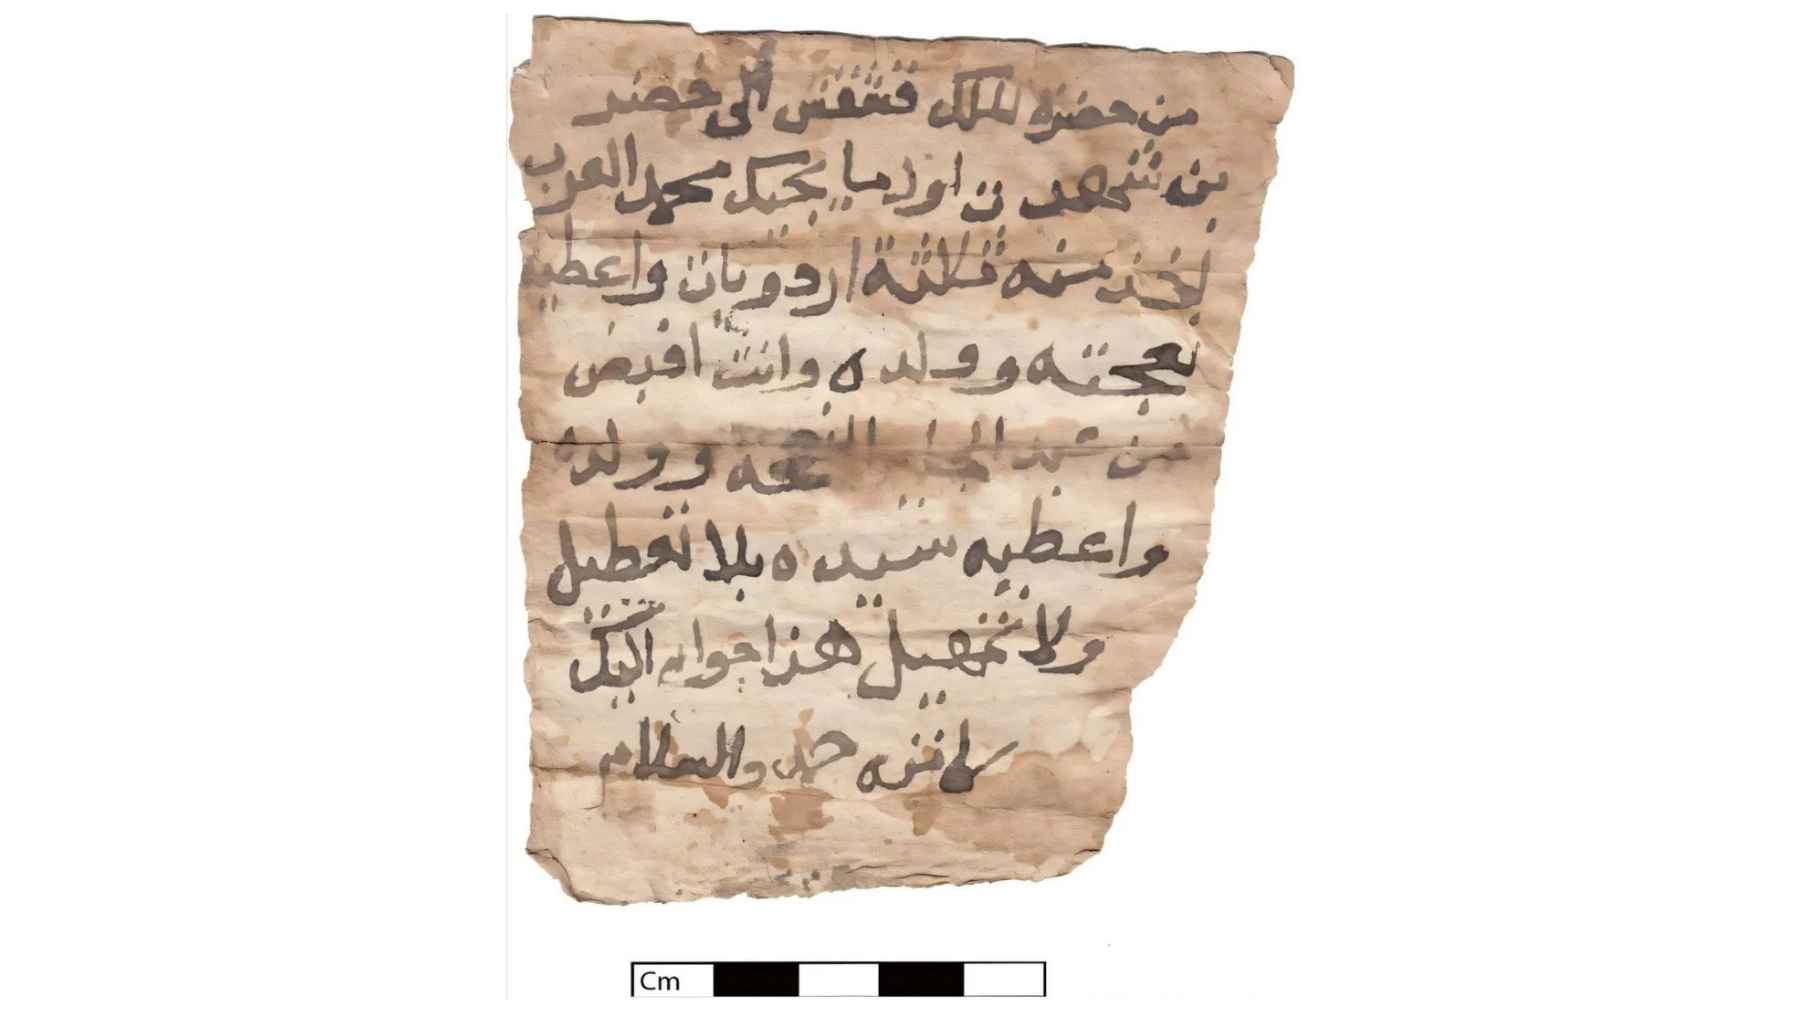 من حضرة الملك قشقش الى خضر
بن شحهدت اول ما يجيك محمد العرب
لخذ منه ثلاثة اردويات واعطيه
نعجته وولده وانت اقبض
من عبد الجابر النعجه وولده
واعطيه سيده بلا تعطيل
ولا تمهيل هذا جواب اليك
كاتبه حمد والسلام
Cm